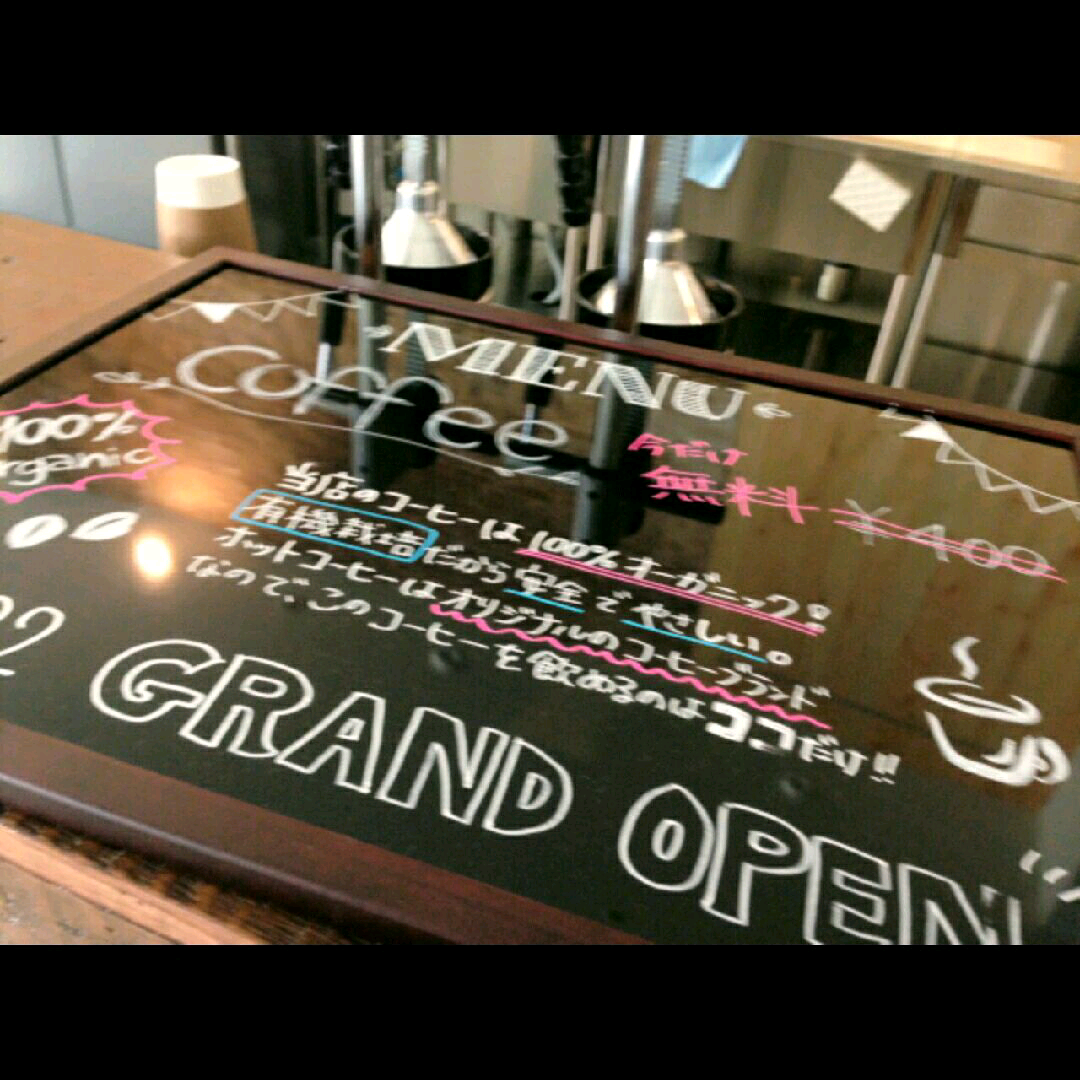 MENU
Coffee
100%
organic
今だけ
無料 ¥400
当店のコーヒーは100%オーガニック!!
有機栽培だから安全でやさしい。
ホットコーヒーはオリジナルのコーヒーブランド
なので、このコーヒーを飲めるのはココだけ!!
GRAND OPEN